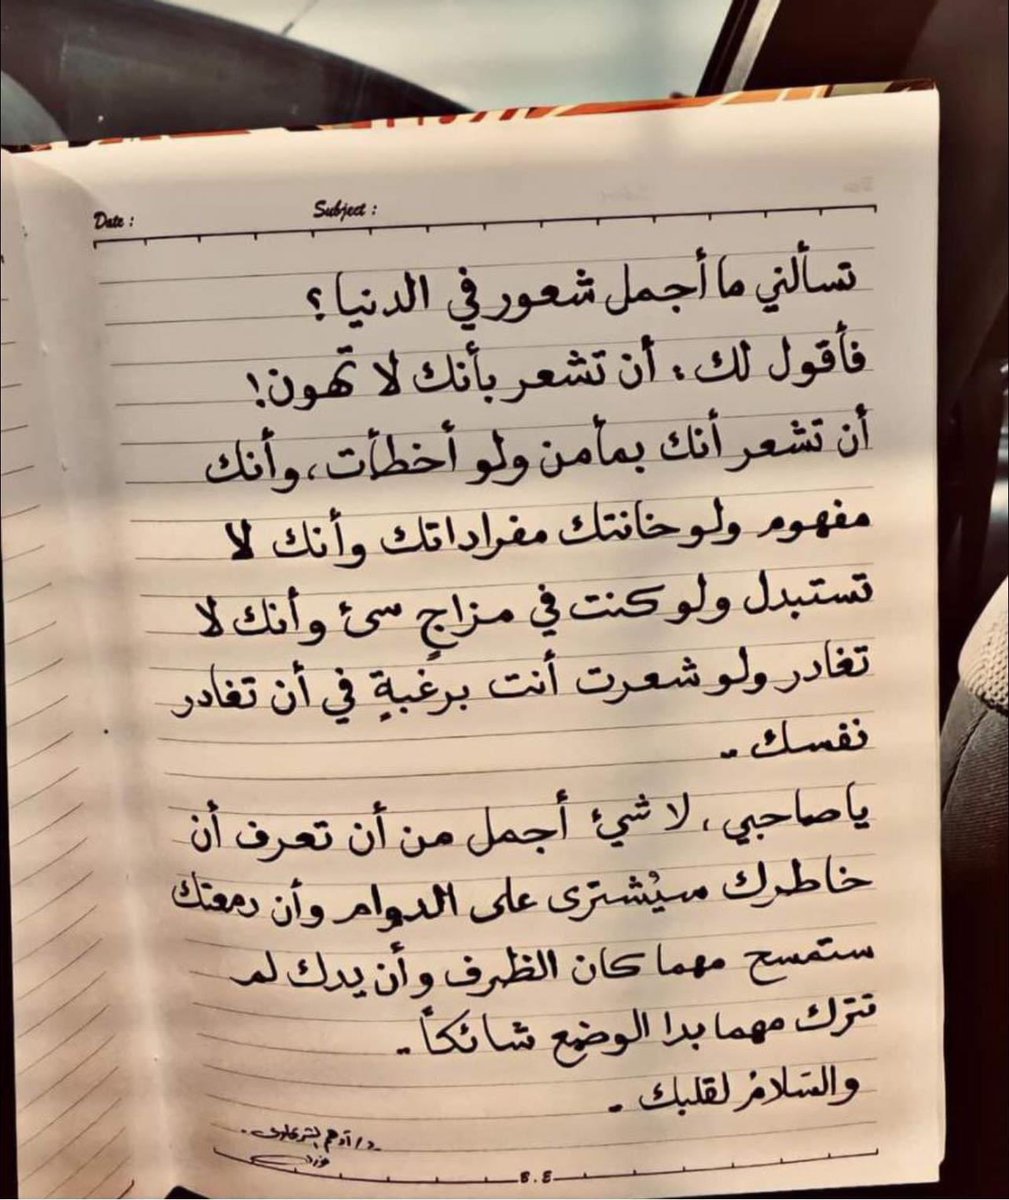 Date :
Subject :
تسألني ما أجمل شعور في الدنيا ؟
فأقول لك : أن تشعر بأنك لا تهون !
أن تشعر أنك بمأمن ولو أخطأت ، وأنك
مفهوم ولو خانتك مفراداتك وأنك لا
تستبدل ولو كنت في مزاجٍ سئ وأنك لا
تغادر ولو شعرت أنت برغبةٍ في أن تغادر
نفسك ..
يا صاحبي ، لا شيء أجمل من أن تعرف أن
خاطرك سيُشترى على الدوام وأن دمعتك
ستمسح مهما كان الظرف وأن يدك لم
تترك مهما بدا الوضع شائكاً ..
والسّلامُ لقلبك .
د / أدهم